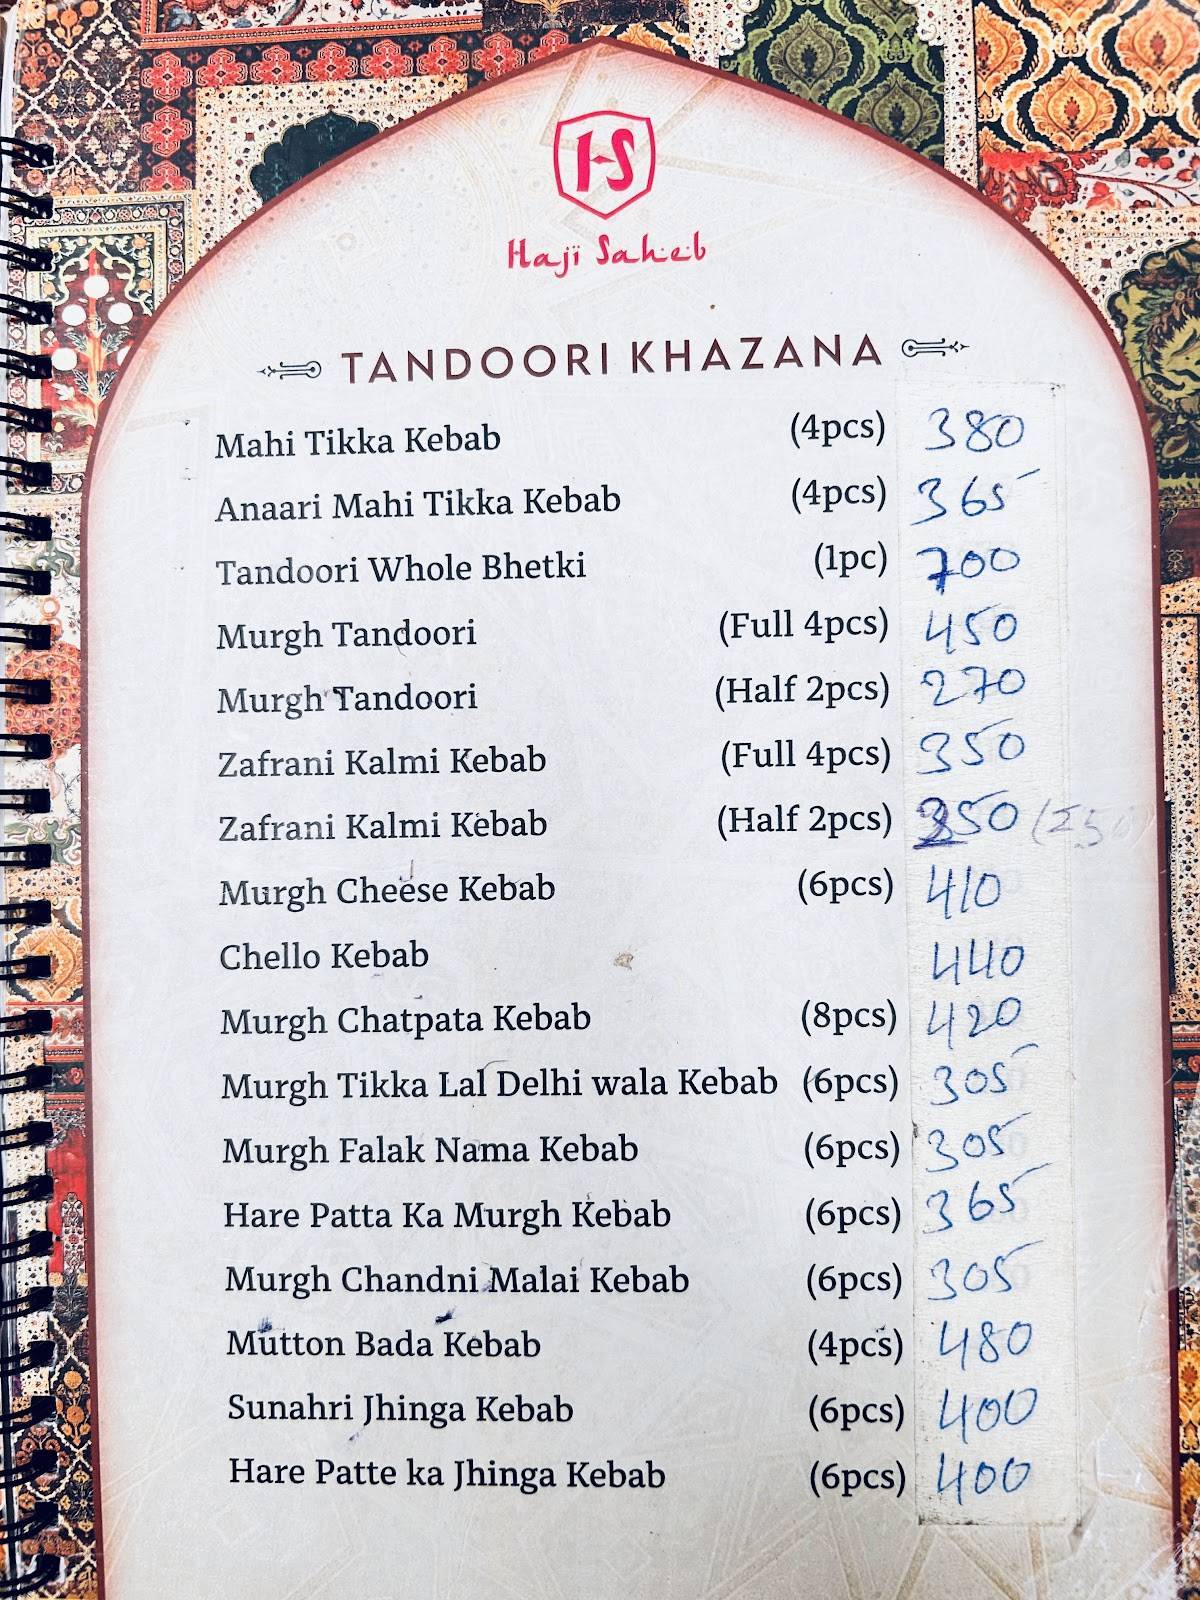 HS
Haji Saheb
TANDOORI KHAZANA
Mahi Tikka Kebab (4pcs) 380
Anaari Mahi Tikka Kebab (4pcs) 365
Tandoori Whole Bhetki (1pc) 700
Murgh Tandoori (Full 4pcs) 450
Murgh Tandoori (Half 2pcs) 270
Zafrani Kalmi Kebab (Full 4pcs) 350
Zafrani Kalmi Kebab (Half 2pcs) 250 (250
Murgh Cheese Kebab (6pcs) 410
Chello Kebab 440
Murgh Chatpata Kebab (8pcs) 420
Murgh Tikka Lal Delhi wala Kebab (6pcs) 305
Murgh Falak Nama Kebab (6pcs) 305
Hare Patta Ka Murgh Kebab (6pcs) 365
Murgh Chandni Malai Kebab (6pcs) 305
Mutton Bada Kebab (4pcs) 480
Sunahri Jhinga Kebab (6pcs) 400
Hare Patte ka Jhinga Kebab (6pcs) 400